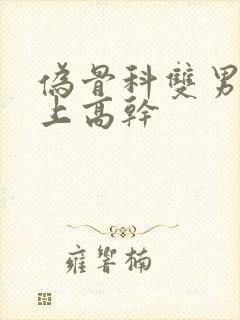 偽骨科雙男
上高幹
雍響楠